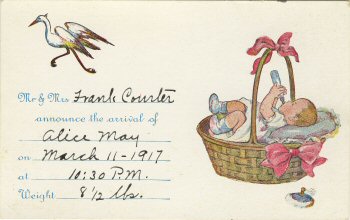 Mr & Mrs Frank Courter
announce the arrival of
Alice May
on March 11-1917
at 10:30 P.M.
Weight 8 1/2 lbs.